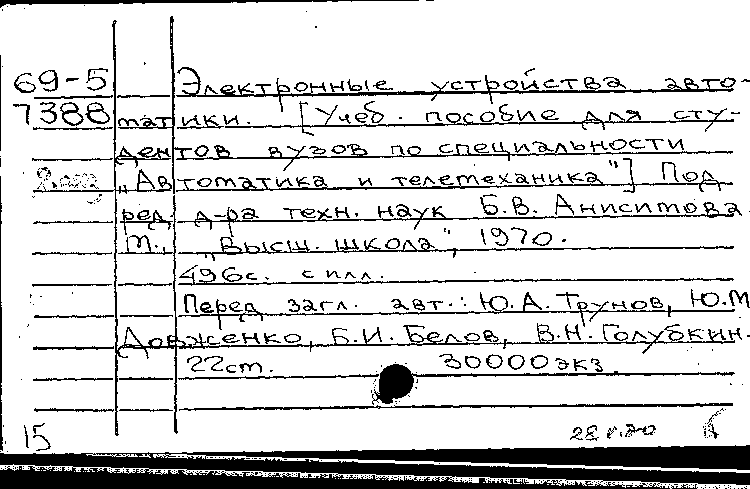 69-5 Электронные устройства авто-
7388 матики. [Учеб. пособие для сту-
дентов вузов по специальности
„Автоматика и телемеханика"] Под
ред. д-ра техн. наук Б.В. Анисимова.
М., „Высш. школа", 1970.
496с. с илл.
Перед загл. авт.: Ю.А. Трунов, Ю.М.
Довженко, Б.И. Белов, В.Н. Голубкин.
22см. 30000экз.
15